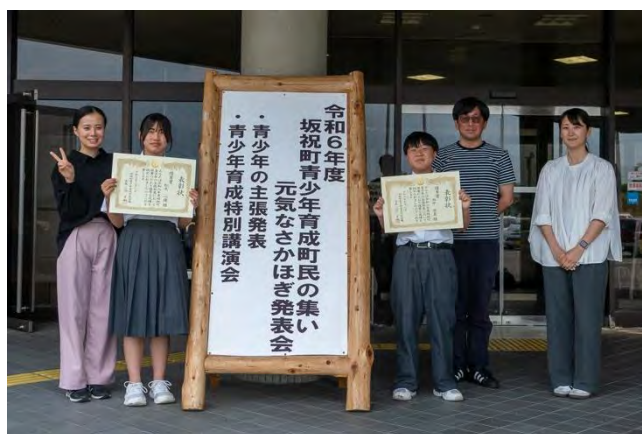 令和6年度
坂祝町青少年育成町民の集い
元気なさかほぎ発表会
・青少年の主張発表
・青少年育成特別講演会
表彰状
表彰状